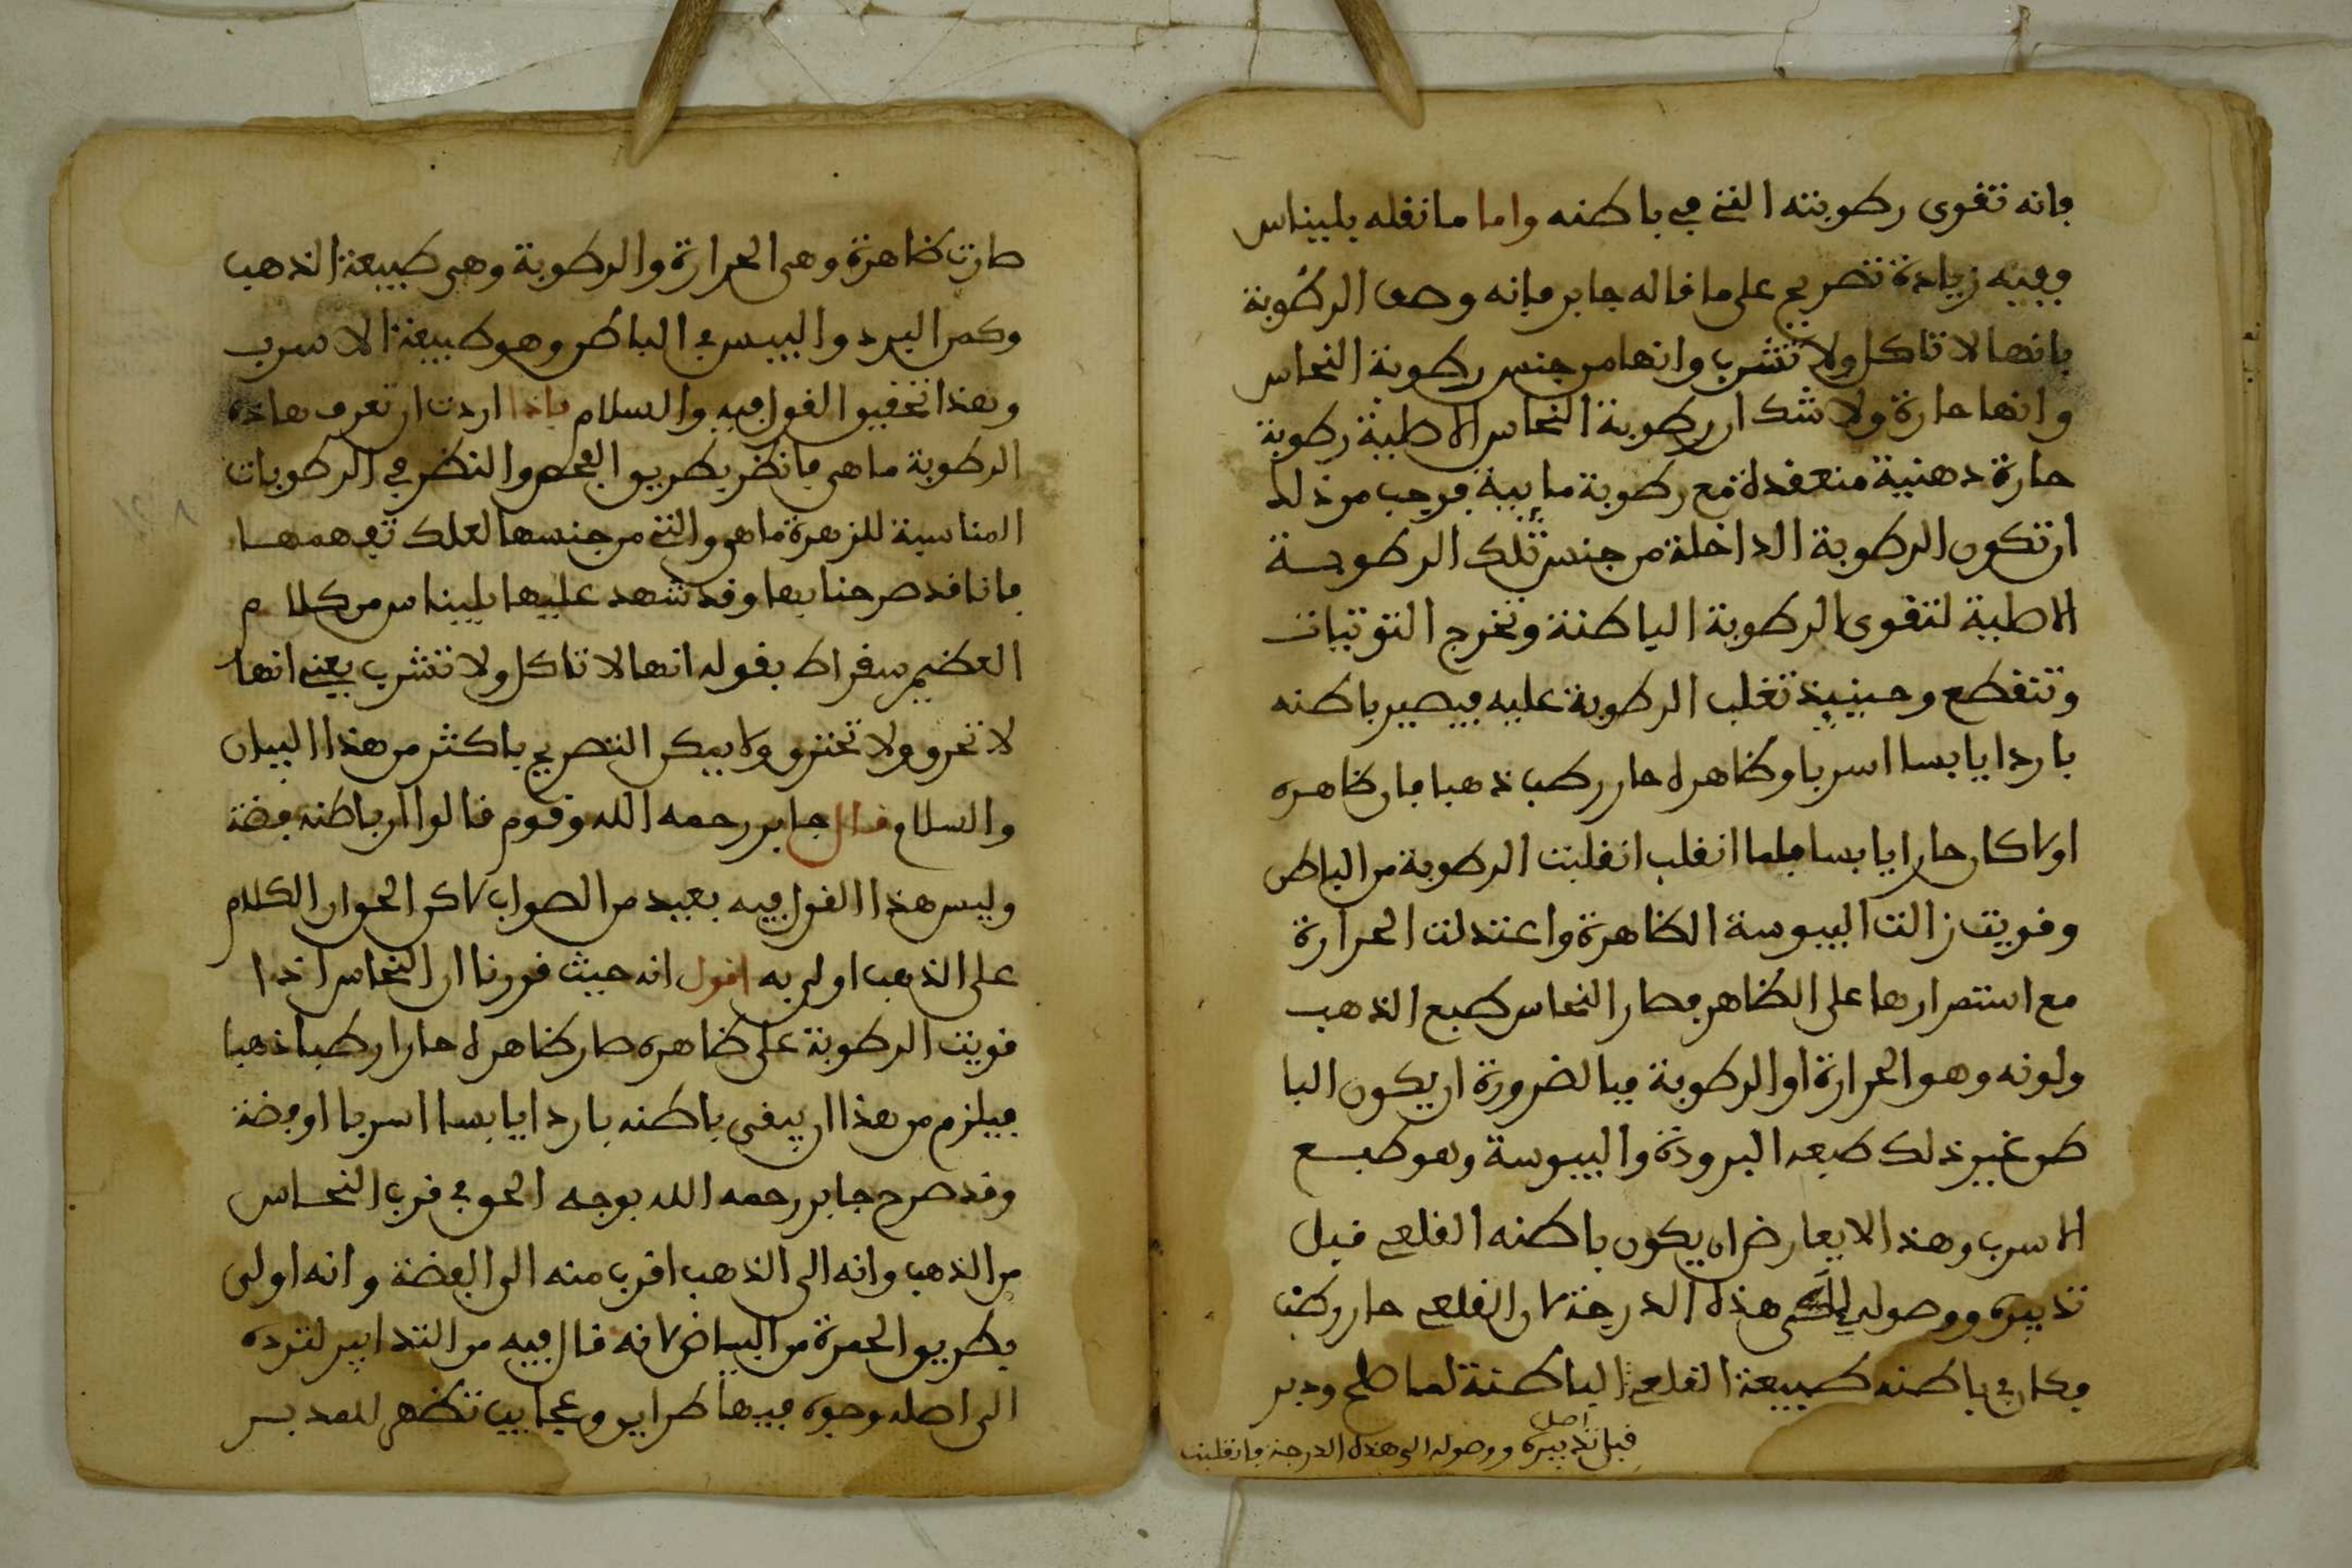 فانه تقوى رطوبته التي في باطنه واما ما نقله بليناس
ففيه زيادة تصريح على ما قاله جابر فانه وصف الرطوبة
بانها لا تاكل ولا تشرب وانها من جنس رطوبة النحاس
وانها حارة ولا شك ان رطوبة النحاس الاصلية رطوبة
حارة دهنية منعقدة مع رطوبة مايية فوجب من ذلك
ان تكون الرطوبة الداخلة من جنس تلك الرطوبة
الاصلية لتقوى الرطوبة الباطنة وتخرج التوتيات
وتنقطع وحينيذ تغلب الرطوبة عليه فيصير باطنه
باردا يابسا اسربا وظاهره حار رطب ذهبا فان ظاهره
اولا كان حارا يابسا فلما انقلب انقلبت الرطوبة من الباطن
وقويت زالت اليبوسة الظاهرة واعتدلت الحرارة
مع استمرارها على الظاهر فصار النحاس كطبع الذهب
ولونه وهو الحرارة او الرطوبة فبالضرورة ان يكون البا
طن غير ذلك طبعه البرودة واليبوسة وهو طبع
الاسرب وهذا لا يعارض ان يكون باطنه القلعي قبل
تدبيره ووصوله الى هذه الدرجة لان القلعي حار رطب
فكان في باطنه طبيعة القلعي الباطنة لما صلح ودبر
اصل
قبل تدبيره ووصوله الى هذه الدرجة فانقلبت
صارت ظاهرة وهي الحرارة والرطوبة وهي طبيعة الذهب
وكمن البرد واليبس في الباطن وهو طبيعة الاسرب
وهذا تحقيق القول فيه والسلام فاذا اردت ان تعرف هاذه
الرطوبة ما هي فانظر بطريق الفحص والنظر في الرطوبات
المناسبة للزهرة ما هي والتي من جنسها لعلك تفهمها
فانا قد صرحنا بها وقد شهد عليها بليناس من كلام
العظيم سقراط بقوله انها لا تاكل ولا تشرب يعني انها
لا تحرق ولا تحترق ولا يمكن التصريح باكثر من هذا البيان
والسلام قال جابر رحمه الله وقوم قالوا ان باطنه فضة
وليس هذا القول فيه بعيد من الصواب لاكن الحق ان الكلام
على الذهب اولى به اقول انه حيث قررنا ان النحاس اذا
قويت الرطوبة على ظاهره صار ظاهره حارا رطبا ذهبا
فيلزم من هذا ان يبقى باطنه باردا يابسا اسربا او فضة
وقد صرح جابر رحمه الله بوجه الحق في قرب النحاس
من الذهب وانه الى الذهب اقرب منه الى الفضة وانه اولى
بطريق الحمرة من البياض لانه قال فيه من التدابير لترده
الى اصله وجوه فيها طرايق وعجايب تظهر للمدبر